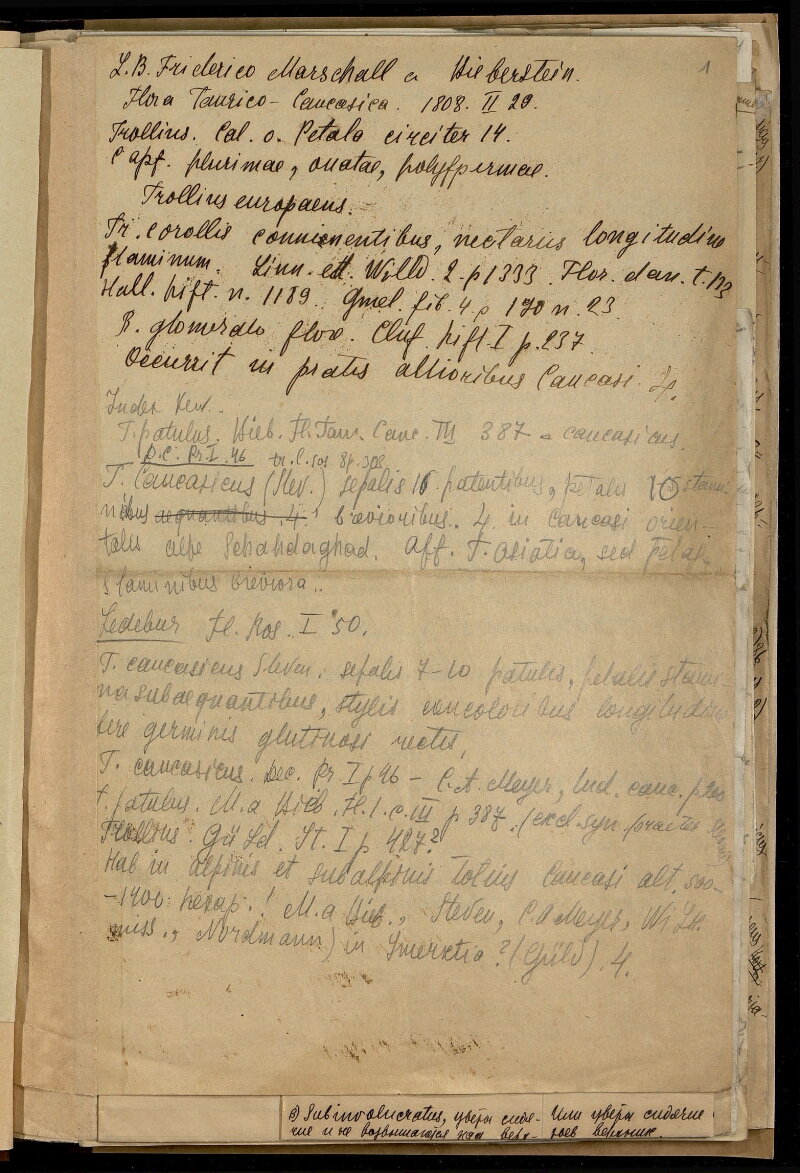 1
L. B. Friderico Marschall a Bieberstein.
Flora Taurico-Caucasica. 1808. II 29.
Trollius. Cal. o. Petala circiter 14.
Capf. plurimae, ovatae, polyfpermae.
Trollius europaeus.
Tr. corollis conniventibus, nectariis longitudine
ftaminum. Linn. ed. Willd. 2. p 1333. Flor. dan. t. 133
Hall. hift. n. 1189. Gmel. fib. 4. p 190 n. 23.
R. glomerato flore. Cluf. hift. I p. 237.
Occurrit in pratis altioribus Caucasi. 4.
Index Kew.
T. patulus. Bieb. Fl. Taur. Cauc. III 387 = caucasicus.
D.C. Pr. I. 46
T. Caucasicus (Stev.) sepalis 10 patentibus, petalis 10 stami-
nibus aequantibus. 4. brevioribus. 4. in Caucasi orien-
talis alpe Schahdaghad. Aff. T. asiatica, sed petal.
Staminibus breviora..
Ledebur Fl. Ros. I 50.
T. caucasicus Steven. sepalis 7-10 patulis, petalis stami-
na subaequantibus, stylis concoloribus longitudine
fere germinis glutinosi rectis,
T. caucasicus. Dec. Pr. I p 46 – C. A. Meyer, Ind. cauc. p. 200
T. patulus. M. a Bieb. Fl. t. c. III p 387. (excl. syn. praeter
Trollius. Güld. It. I p 427?
Hab in alpinis et subalpinis totius Caucasi alt. 800-
-1400 hexap.! M. a Bieb., Steven, C. A Meyer, Wilh.
miss., Nordmann) in Imeretia? (Güld). 4.
β) Subinvolucratus, цветы сидя-
чие и не возвышаются над верх-
Или цветы сидячие
гоев верхник.